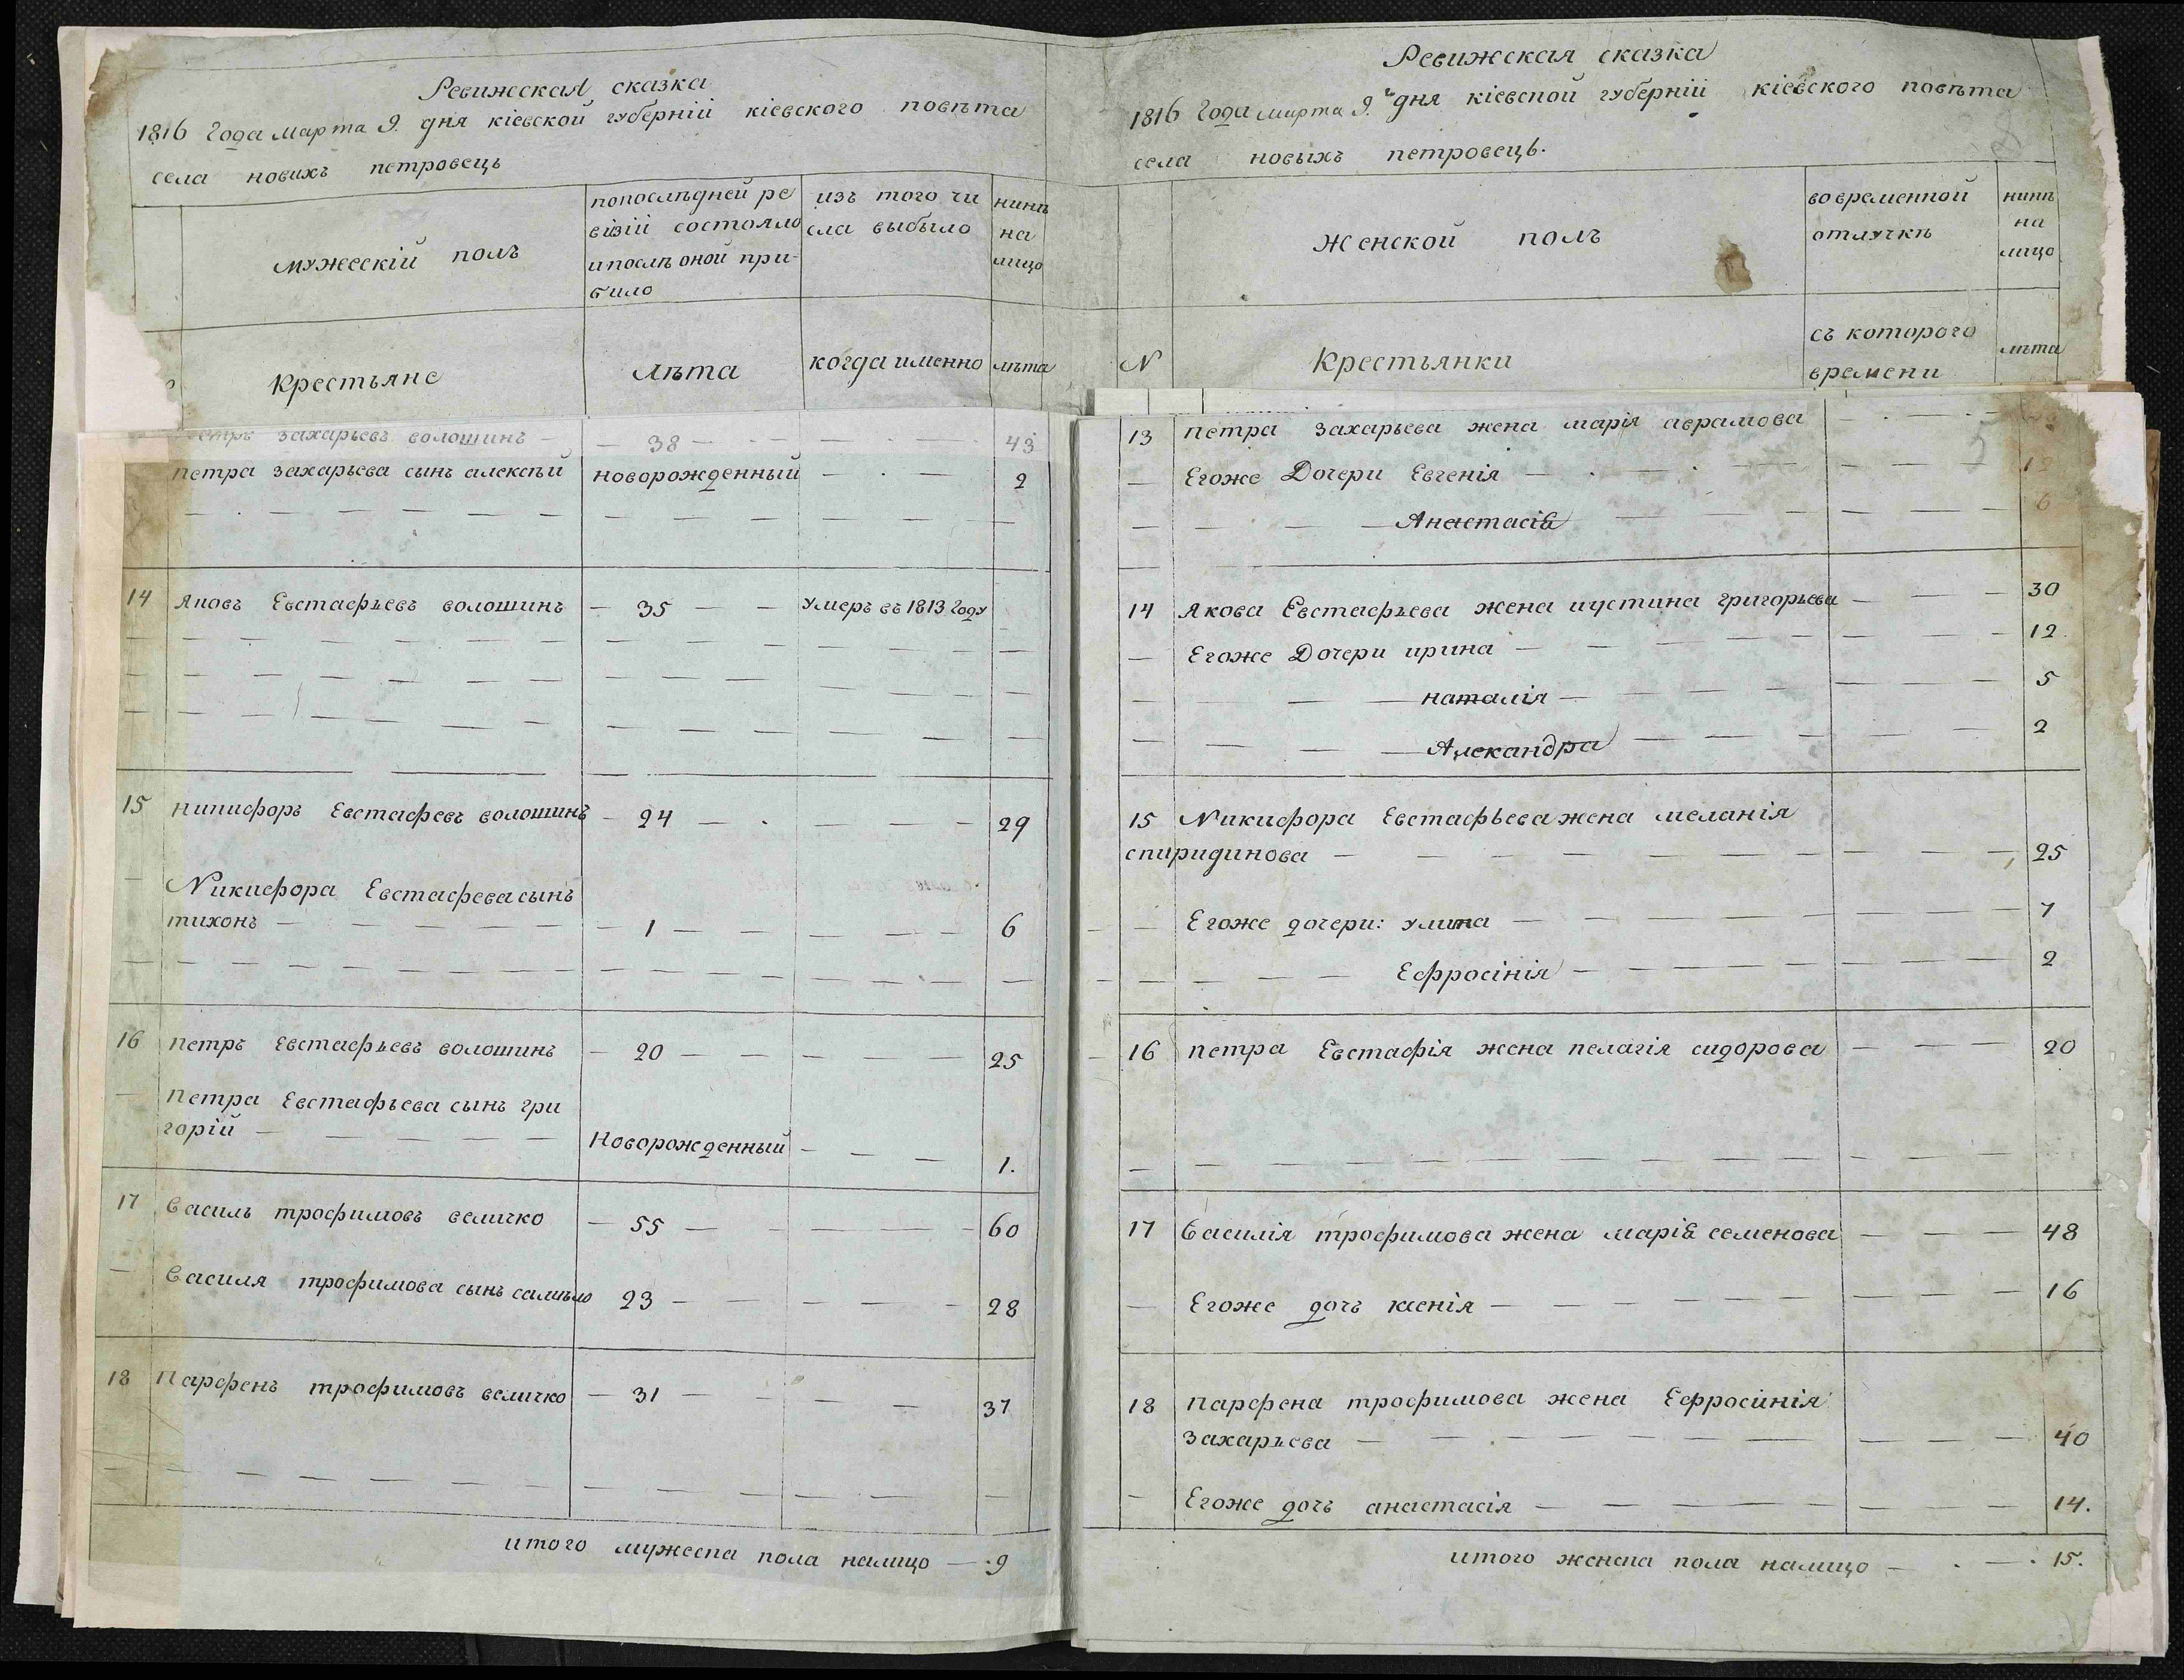 Ревижская сказка
1816 года марта 9. дня кіевской губерніи кіевского повѣта
села новихъ петровець
мужескій полъ
попослѣдней ре
визіи состояло
ипослѣ оной при-
било
изъ того чи
сла выбыло
нинѣ
на
лицо
крестьяне
лѣта
когда именно
лѣта
петръ захарьевъ волошинъ — 38 — 43
петра захарьева сынъ алексѣй новорожденный — 2
14 яковъ Евстафьевъ волошинъ — 35 — умеръ въ 1813 году
15 никифоръ Евстафевъ волошинъ — 24 — 29
Никифора Евстафева сынъ
тихонъ — 1 — 6
16 петръ Евстафьевъ волошинъ — 20 — 25
петра Евстафьева сынъ гри
горій — Новорожденный — 1.
17 василь трофимовъ величко — 55 — 60
василя трофимова сынъ самыло 23 — 28
18 Парфенъ трофимовъ величко — 31 — 37
итого мужеска пола налицо — 9
Ревижская сказка
1816 года марта 9. дня кіевской губерніи кіевского повѣта
села новыхъ петровець.
женской полъ
во временной
отлучкѣ
нинѣ
на
лицо
N
Крестьянки
съ которого
времени
лѣта
13 петра захарьева жена марія аврамова
Егоже Дочери Евгенія — 12
Анастасія — 6
14 Якова Евстафьева жена иустина григорьева — 30
Егоже Дочери ирина — 12
наталія — 5
Алекандра — 2
15 Никифора Евстафьева жена меланія
спиридинова — 25
Егоже дочери: улина — 7
Ефросінія — 2
16 петра Евстафія жена пелагія сидорова — 20
17 василія трофимова жена марія семенова — 48
Егоже дочъ ксенія — 16
18 парфена трофимова жена Ефросинія
захарьева — 40
Егоже дочъ анастасія — 14.
итого женска пола налицо — 15.